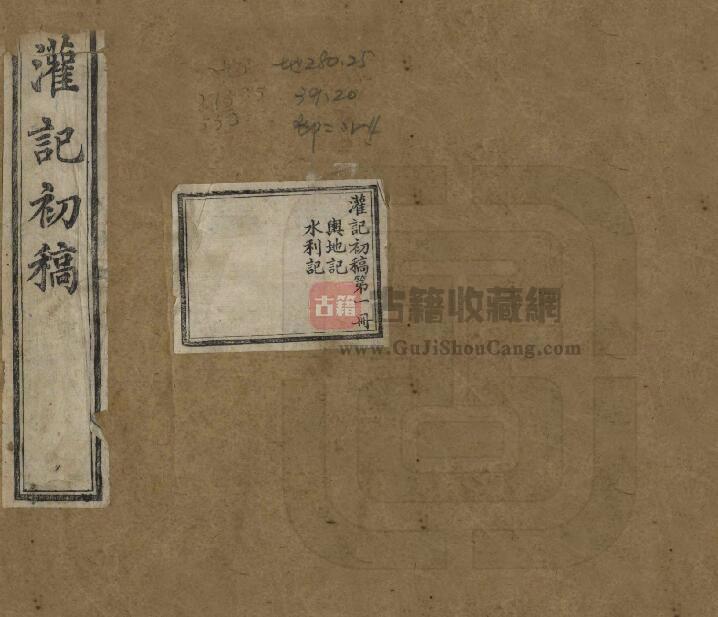 灌記初稿
地280.25
39.20
灌記初稿第一冊
輿地記
水利記
古籍
古籍收藏網
www.GuJiShouCang.com